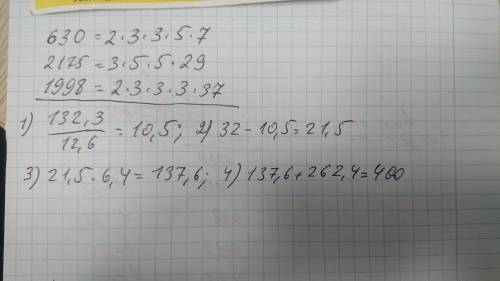 630 = 2·3·3·5·7
2175 = 3·5·5·29
1998 = 2·3·3·3·37
1) 132,3/12,6 = 10,5; 2) 32 - 10,5 = 21,5
3) 21,5·6,4 = 137,6; 4) 137,6 + 262,4 = 400